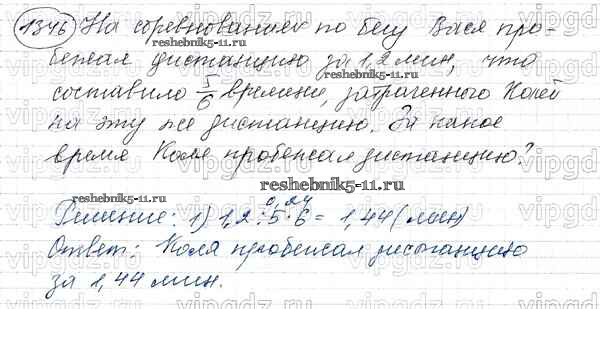 1346 На соревнованиях по бегу Вася про-
reshebnik5-11.ru
бежал дистанцию за 1,2 мин, что
составило 5/6 времени, затраченного Колей
на эту же дистанцию. За какое
время Коля пробежал дистанцию?
reshebnik5-11.ru
0,24
Решение: 1) 1,2 : 5 · 6 = 1,44 (мин)
Ответ: Коля пробежал дистанцию
reshebnik5-11.ru
за 1,44 мин.
vipgdz.ru